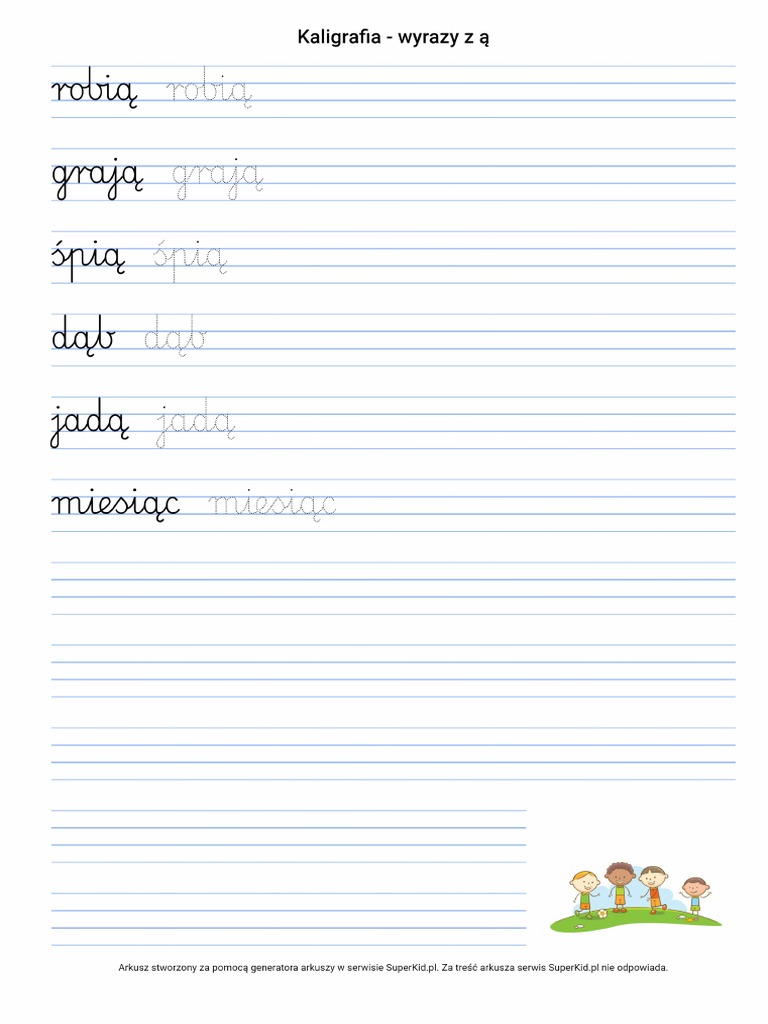 Kaligrafia - wyrazy z ą
robią robią
grają grają
śpią śpią
dąb dąb
jadą jadą
miesiąc miesiąc
Arkusz stworzony za pomocą generatora arkuszy w serwisie SuperKid.pl. Za treść arkusza serwis SuperKid.pl nie odpowiada.